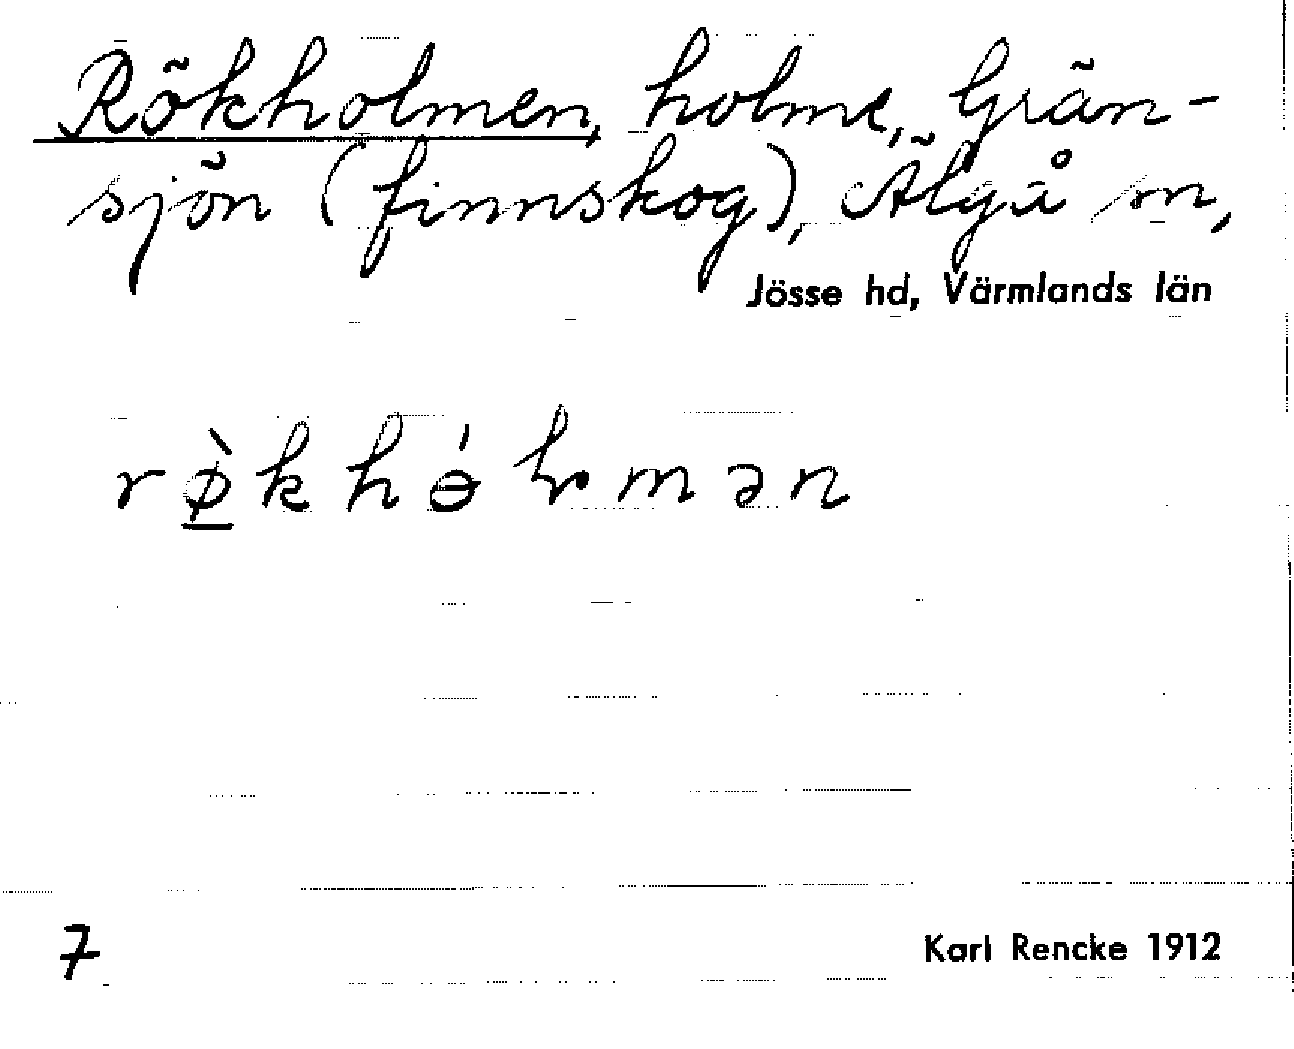 Rökholmen, holme, Grän-
sjön (finnskog), Älgå sn,
Jösse hd, Värmlands län
rø̲̀khɵ́ɽmən
7
Karl Rencke 1912